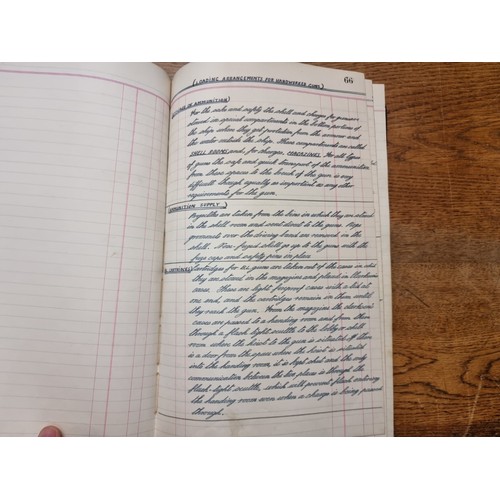 66
(LOADING ARRANGEMENTS FOR HANDWORKED GUNS)
OF AMMUNITION)
For the sake and safety the shell and charges for guns are
stowed in special compartments in the bottom portions of
the ship where they get protection from the armour and
the water outside the ship. These compartments are called
SHELL ROOMS and, for charges, MAGAZINES. For all types
of guns the safe and quick transport of the ammunition
from these spaces to the breech of the gun is very
difficult though equally as important as any other
requirements for the gun.
AMMUNITION SUPPLY)
Projectiles are taken from the bins in which they are stowed
in the shell room and sent direct to the guns. Rope
grommets over the driving band are removed in the
shell. Nose fuzed shell go up to the guns with the
fuze caps and safety pins in place.
CARTRIDGES)
Cartridges for ALL guns are taken out of the cases in which
they are stowed in the magazine and placed in Clarkson
cases. These are light fireproof cases with a lid at
one end, and the cartridges remain in them until
they reach the gun. From the magazine the clarkson
cases are passed to a handing room and from there
through a flash tight scuttle to the lobby or shell
room where the hoist to the gun is situated. If there
is a door from the space where the hoist is situated
into the handing room, it is kept shut and the only
communication between the two places is through the
flash-tight scuttle, which will prevent flash entering
the handing room even when a charge is being passed
through.